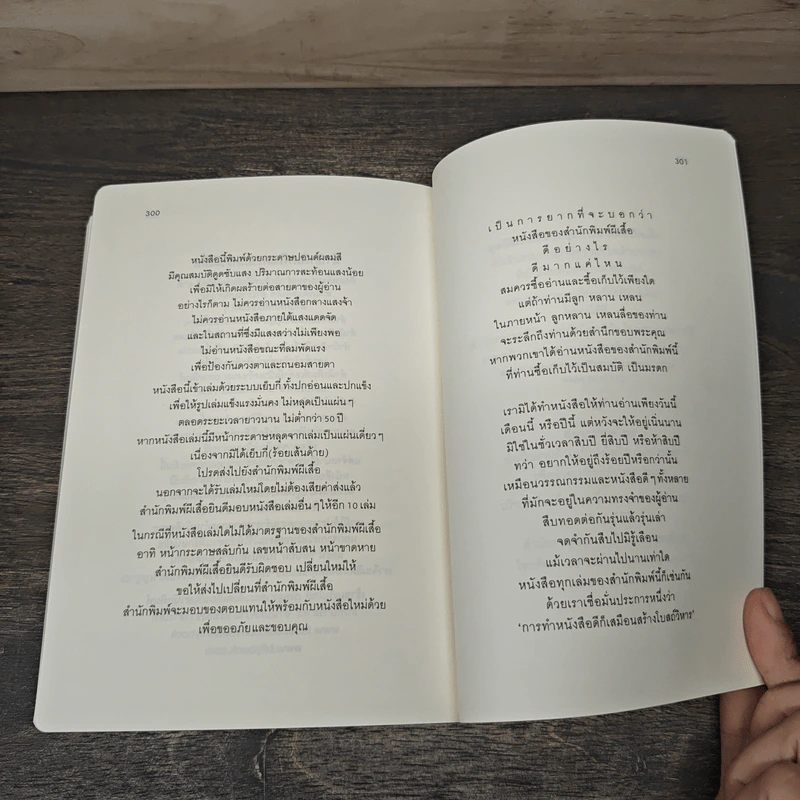 300
หนังสือนี้พิมพ์ด้วยกระดาษปอนด์ผสมสี
มีคุณสมบัติดูดซับแสง ปริมาณการสะท้อนแสงน้อย
เพื่อมิให้เกิดผลร้ายต่อสายตาของผู้อ่าน
อย่างไรก็ตาม ไม่ควรอ่านหนังสือกลางแสงจ้า
ไม่ควรอ่านหนังสือภายใต้แสงแดดจัด
และในสถานที่ซึ่งมีแสงสว่างไม่เพียงพอ
ไม่อ่านหนังสือขณะที่ลมพัดแรง
เพื่อป้องกันดวงตาและถนอมสายตา
หนังสือนี้เข้าเล่มด้วยระบบเย็บกี่ ทั้งปกอ่อนและปกแข็ง
เพื่อให้รูปเล่มแข็งแรงมั่นคง ไม่หลุดเป็นแผ่นๆ
ตลอดระยะเวลายาวนาน ไม่ต่ำกว่า 50 ปี
หากหนังสือเล่มนี้มีหน้ากระดาษหลุดจากเล่มเป็นแผ่นเดี่ยวๆ
เนื่องจากมิได้เย็บกี่(ร้อยเส้นด้าย)
โปรดส่งไปยังสำนักพิมพ์ผีเสื้อ
นอกจากจะได้รับเล่มใหม่โดยไม่ต้องเสียค่าส่งแล้ว
สำนักพิมพ์ผีเสื้อยินดีมอบหนังสือเล่มอื่นๆให้อีก 10 เล่ม
ในกรณีที่หนังสือเล่มใดไม่ได้มาตรฐานของสำนักพิมพ์ผีเสื้อ
อาทิ หน้ากระดาษสลับกัน เลขหน้าสับสน หน้าขาดหาย
สำนักพิมพ์ผีเสื้อยินดีรับผิดชอบ เปลี่ยนใหม่ให้
ขอให้ส่งไปเปลี่ยนที่สำนักพิมพ์ผีเสื้อ
สำนักพิมพ์จะมอบของตอบแทนให้พร้อมกับหนังสือใหม่ด้วย
เพื่อขออภัยและขอบคุณ
301
เป็นการยากที่จะบอกว่า
หนังสือของสำนักพิมพ์ผีเสื้อ
ดีอย่างไร
ดีมากแค่ไหน
สมควรซื้ออ่านและซื้อเก็บไว้เพียงใด
แต่ถ้าท่านมีลูก หลาน เหลน
ในภายหน้า ลูกหลาน เหลนลื่อของท่าน
จะระลึกถึงท่านด้วยสำนึกขอบพระคุณ
หากพวกเขาได้อ่านหนังสือของสำนักพิมพ์นี้
ที่ท่านซื้อเก็บไว้เป็นสมบัติ เป็นมรดก
เรามิได้ทำหนังสือให้ท่านอ่านเพียงวันนี้
เดือนนี้ หรือปีนี้ แต่หวังจะให้อยู่เนิ่นนาน
มิใช่ในชั่วเวลาสิบปี ยี่สิบปี หรือห้าสิบปี
ทว่า อยากให้อยู่ถึงร้อยปีหรือกว่านั้น
เหมือนวรรณกรรมและหนังสือดีๆทั้งหลาย
ที่มักจะอยู่ในความทรงจำของผู้อ่าน
สืบทอดต่อกันรุ่นแล้วรุ่นเล่า
จดจำกันสืบไปมิรู้เลือน
แม้เวลาจะผ่านไปนานเท่าใด
หนังสือทุกเล่มของสำนักพิมพ์นี้ก็เช่นกัน
ด้วยเราเชื่อมั่นประการหนึ่งว่า
'การทำหนังสือดีก็เสมือนสร้างโบสถ์วิหาร'